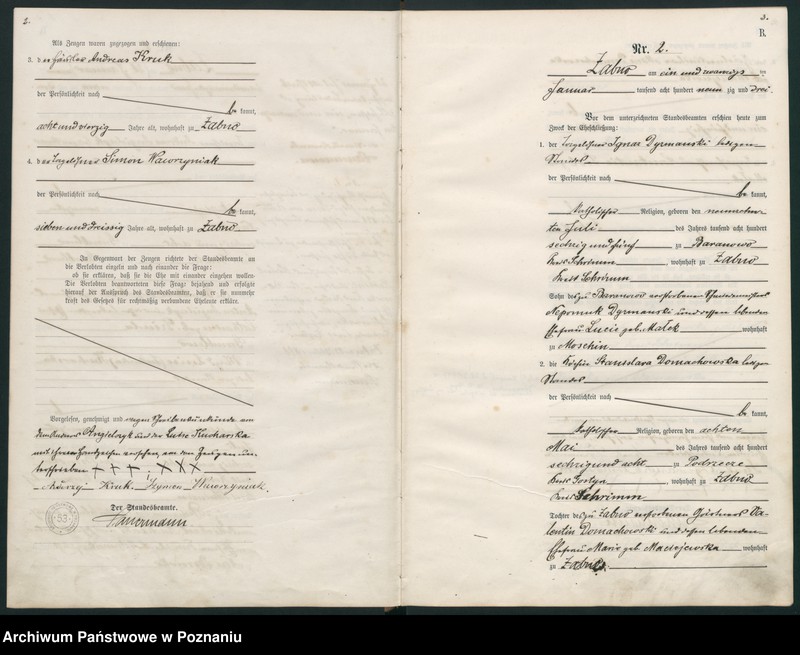 2.
Als Zeugen waren zugezogen und erschienen:
3. der Häusler Andreas Kruk
der Persönlichkeit nach
be kannt,
acht und vierzig Jahre alt, wohnhaft zu Zabno
4. der Tagelöhner Simon Wawrzyniak
der Persönlichkeit nach
be kannt,
sieben und dreissig Jahre alt, wohnhaft zu Zabno
In Gegenwart der Zeugen richtete der Standesbeamte an
die Verlobten einzeln und nach einander die Frage:
ob sie erklären, daß sie die Ehe mit einander eingehen wollen.
Die Verlobten beantworteten diese Frage bejahend und erfolgte
hierauf der Ausspruch des Standesbeamten, daß er sie nunmehr
kraft des Gesetzes für rechtmäßig verbundene Eheleute erkläre.
Vorgelesen, genehmigt und wegen Schreibensunkunde von
dem Andreas und der Kucharska
mit ihren Handzeichen versehen, von den Zeugen un-
terschrieben +++. XXX
Kruk. Szymon Wawrzyniak.
Der Standesbeamte.
53
3.
B.
Nr. 2.
Zabno am ein und zwanzigs ten
Januar tausend acht hundert neun zig und drei
Vor dem unterzeichneten Standesbeamten erschienen heute zum
Zweck der Eheschließung:
1. der Tagelöhner Ignaz Dyrmanski ledigen
Standes
der Persönlichkeit nach
be kannt,
katholischer Religion, geboren den neunzehn-
ten Juli des Jahres tausend acht hundert
sechzig und fünf zu Baranowo
Kreis Schrimm, wohnhaft zu Zabno
Kreis Schrimm
Sohn des zu Baranowo verstorbenen
Nepomuk Dyrmanski und dessen lebenden
Ehefrau Lucie geb. Malek wohnhaft
zu Moschin
2. die Köchin Stanislava Domachowska ledigen
Standes
der Persönlichkeit nach
be kannt,
katholischer Religion, geboren den achten
Mai des Jahres tausend acht hundert
sechzig und acht zu Podrzecze
Kreis Gostyn, wohnhaft zu Zabno
Kreis Schrimm
Tochter des zu Zabno verstorbenen Va-
lentin Domachowski und dessen lebenden
Ehefrau Marie geb. Maciejewska wohnhaft
zu Zabno.
Archiwum Państwowe w Poznaniu